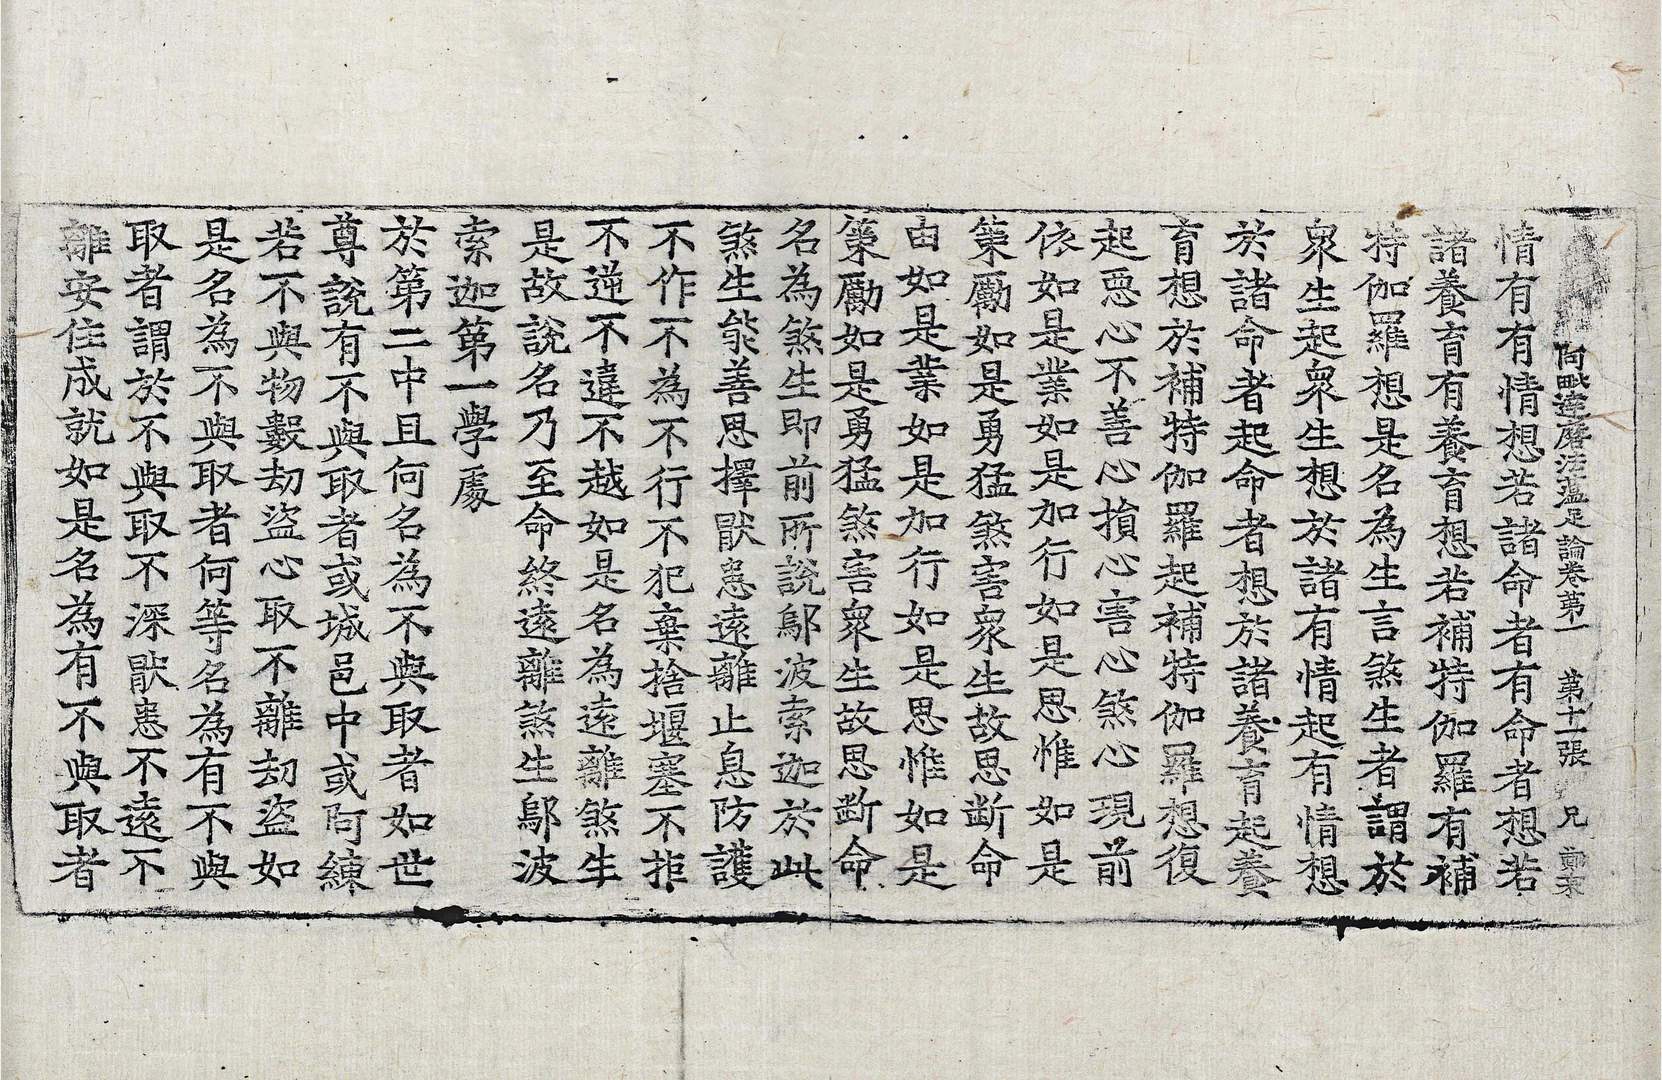 阿毗達磨法蘊足論卷第一　第十一張　兄
情有有情想若諸命者有命者想若
諸養育有養育想若補特伽羅有補
特伽羅想是名為生言煞生者謂於
衆生起衆生想於諸有情起有情想
於諸命者起命者想於諸養育起養
育想於補特伽羅起補特伽羅想復
起惡心不善心損心害心煞心現前
依如是業如是加行如是思惟如是
策勵如是勇猛煞害衆生故思斷命
由如是業如是加行如是思惟如是
策勵如是勇猛煞害衆生故思斷命
名為煞生即前所說鄔波索迦於此
煞生能善思擇猒患遠離止息防護
不作不為不行不犯棄捨堰塞不拒
不逆不違不越如是名為遠離煞生
是故說名乃至命終遠離煞生鄔波
索迦第一學處
於第二中且何名為不與取者如世
尊說有不與取者或城邑中或阿練
若不與物數劫盜心取不離劫盜如
是名為不與取者何等名為有不與
取者謂於不與取不深猒患不遠不
離安住成就如是名為有不與取者